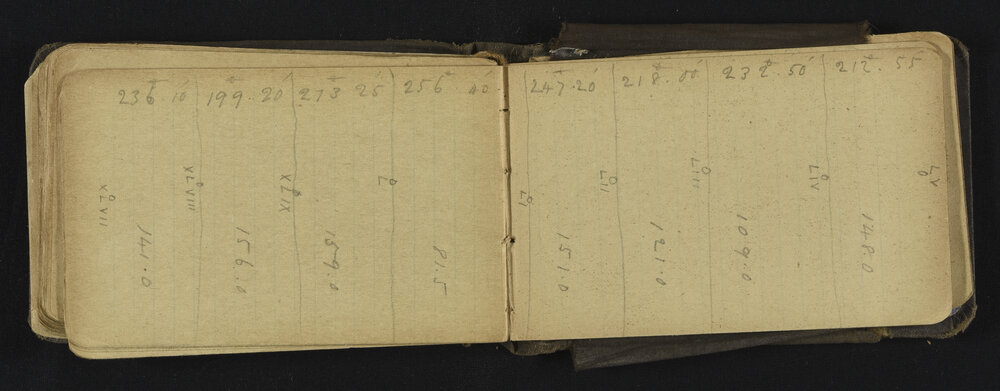 236° 10' 199° 20' 273° 25' 256° 40'
XLVII
XLVIII
XLIX
L
141.0
156.0
159.0
81.5
247° 20' 218° 00' 232° 50' 212° 55'
LI
LII
LIII
LIV
LV
151.0
121.0
109.0
148.0